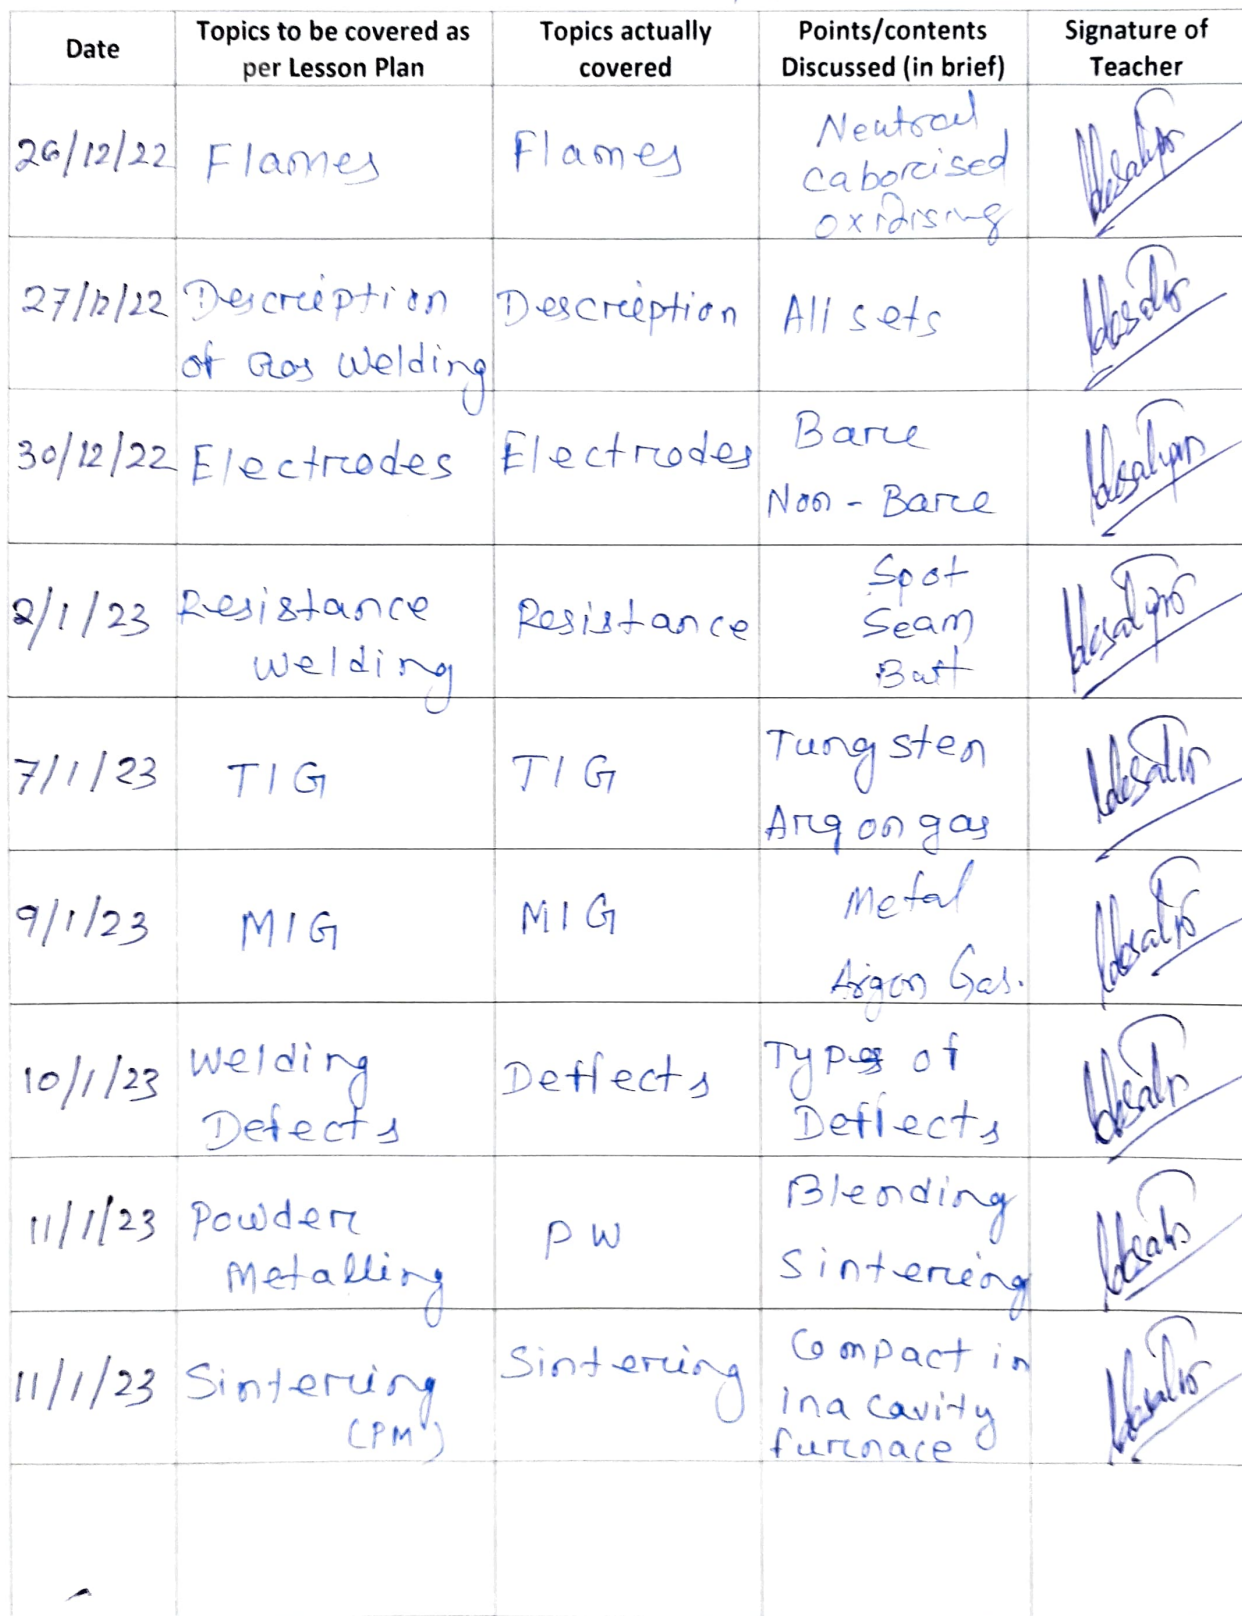 Date
Topics to be covered as
per Lesson Plan
Topics actually
covered
Points/contents
Discussed (in brief)
Signature of
Teacher
26/12/22
Flames
Flames
Neutral
Caborcised
oxidising
27/12/22
Description
of Gas Welding
Description
All sets
30/12/22
Electrodes
Electrodes
Bare
Non - Bare
2/1/23
Resistance
welding
Resistance
Spot
Seam
Butt
7/1/23
TIG
TIG
Tungsten
Argon gas
9/1/23
MIG
MIG
Metal
Argon Gas.
10/1/23
Welding
Defects
Deffects
Types of
Deffects
11/1/23
Powder
Metalling
PW
Blending
Sintering
11/1/23
Sintering
(PM)
Sintering
Compact in
In a cavity
furnace